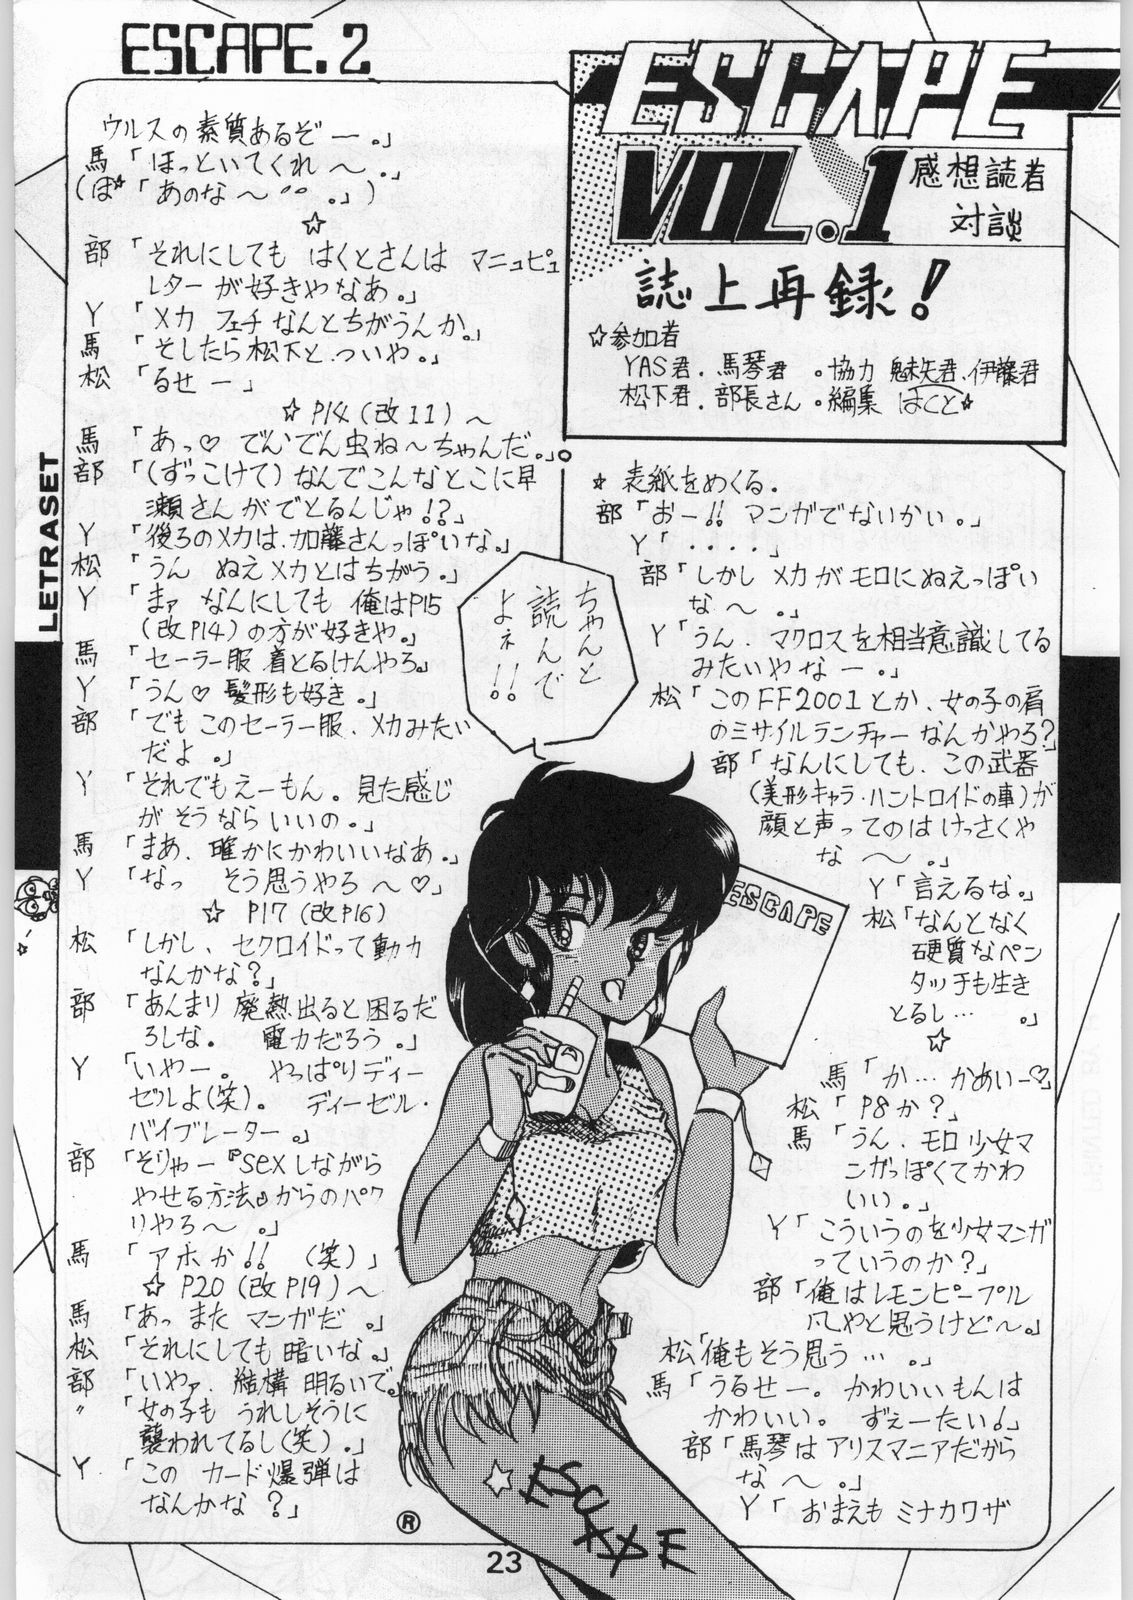 ESCAPE.2
ESCAPE
VOL.1
感想読者
対談
誌上再録!
☆参加者
YAS君. 馬琴君 。協力 魅矢君、伊藤君
松下君. 部長さん 。編集 はくと☆
☆ 表紙をめくる.
部「おー!! マンガでないかい。」
Y「・・・・」
部「しかし メカがモロにぬえっぽい
な〜 。」
Y「うん. マクロスを相当意識してる
みたいやなー。」
松「このFF2001とか、女の子の肩
のミサイルランチャーなんかやろ?」
部「なんにしても、この武器
(美形キャラ・ハントロイドの車)が
顔と声ってのはけっさくや
な〜 。」
Y「言えるな。」
松「なんとなく
硬質なペン
タッチも生き
とるし… 。」
☆
馬「か… かあいー♡」
松「P8か?」
馬「うん. モロ少女マ
ンガっぽくてかわ
いい。」
Y「こういうのを少女マンガ
っていうのか?」
部「俺はレモンピープル
風やと思うけど〜。」
松「俺もそう思う… 。」
馬「うるせー。かわいいもんは
かわいい。 ずぇーたい!」
部「馬琴はアリスマニアだから
な〜 。」
Y「おまえも ミナカワザ
ウルスの素質あるぞー。」
馬「ほっといてくれ〜 。」
(ぽ☆「あのな〜 。」)
☆
部「それにしても はくとさんは マニュピュ
レターが好きやなあ。」
Y「メカ フェチなんとちがうんか。」
馬「そしたら松下と ついや。」
松「るせー」
☆ P14(改11)〜
馬「あっ♡ でんでん虫ね〜ちゃんだ。」
部「(ずっこけて)なんでこんなとこに早
瀬さんがでとるんじゃ!?」
Y「後ろのメカは、加藤さんっぽいな。」
松「うん ぬえメカとはちがう。」
Y「まァ なんにしても 俺はP15
(改P14)の方が好きや。」
馬「セーラー服着とるけんやろ」
Y「うん♡ 髪形も好き。」
部「でも このセーラー服、メカみたい
だよ 。」
Y「それでもえーもん。見た感じ
がそうならいいの。」
馬「まあ、確かにかわいいなあ。」
Y「なっ そう思うやろ〜♡」
☆ P17(改P16)
松「しかし、セクロイドって動力
なんかな?」
部「あんまり廃熱出ると困るだ
ろしな。 電力だろう。」
Y「いやー。 やっぱりディー
ゼルよ(笑)。 ディーゼル・
バイブレーター。」
部「そりゃー『sexしながら
やせる方法』からのパク
リやろ〜 。」
馬「アホか!! (笑)」
☆ P20(改P19)〜
馬「あっ また マンガだ 。」
松「それにしても暗いな。」
部「いやァ. 結構 明るいで。
〃「女の子も うれしそうに
襲われてるし(笑)。」
Y「この カード爆弾は
なんかな?」
ちゃんと
読んで
よネ!!
ESCAPE
☆ESCAPE
LETRASET
®
23